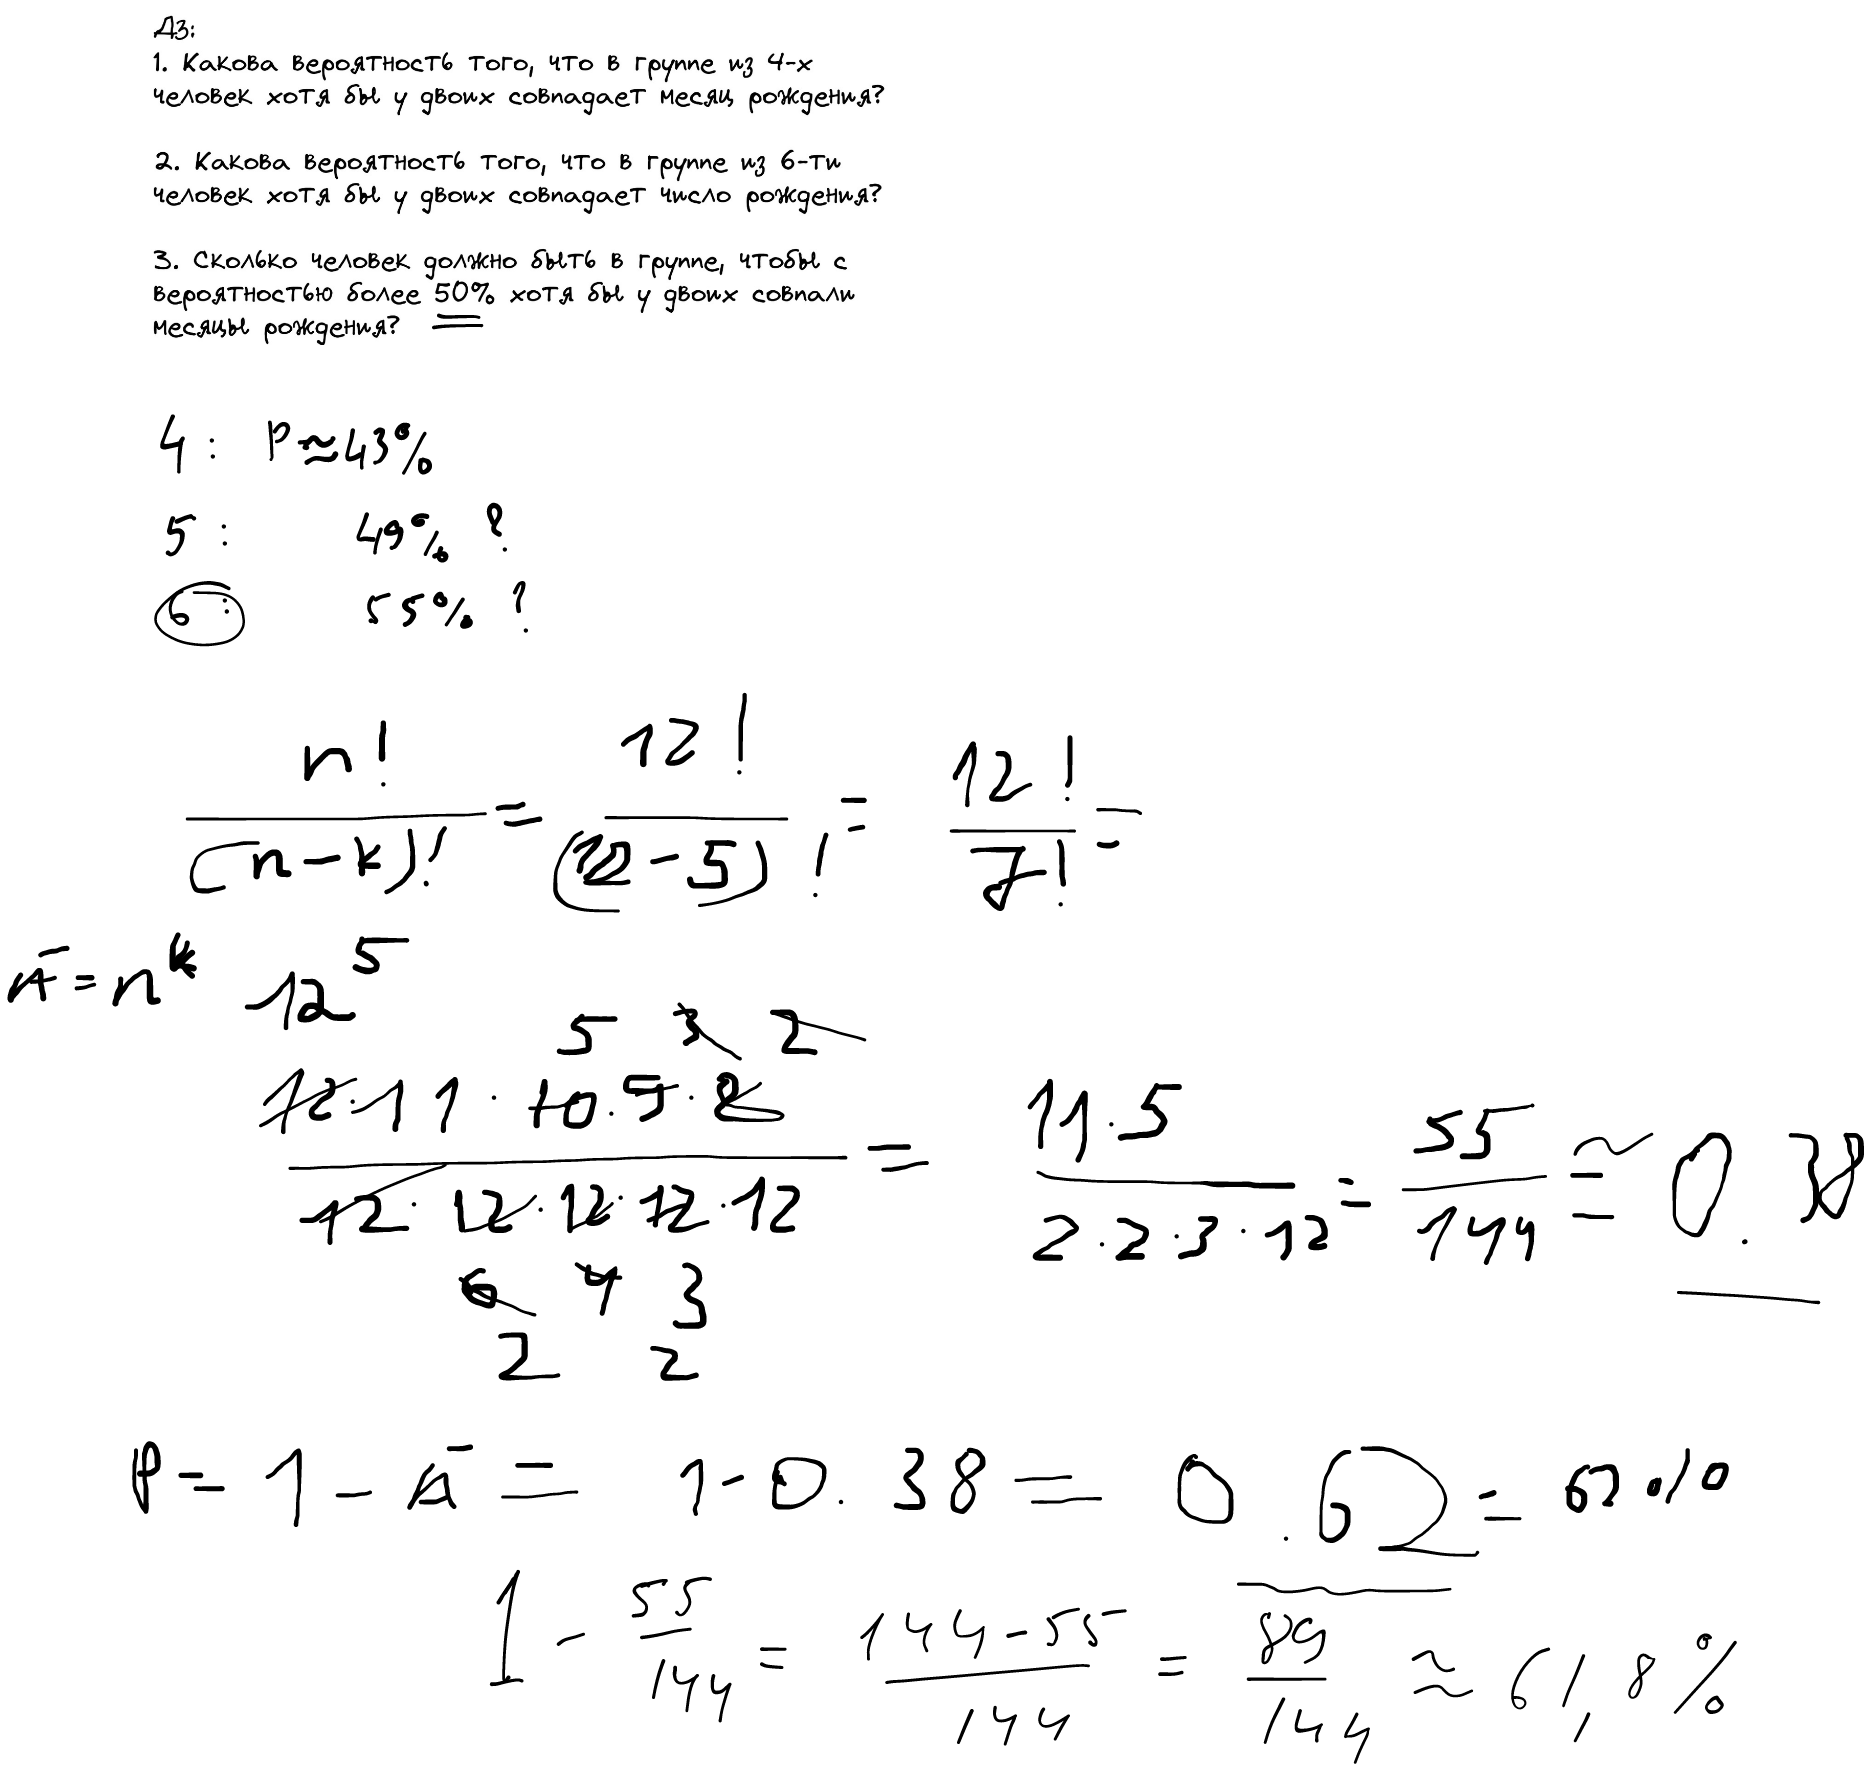 ДЗ:
1. Какова вероятность того, что в группе из 4-х
человек хотя бы у двоих совпадает месяц рождения?
2. Какова вероятность того, что в группе из 6-ти
человек хотя бы у двоих совпадает число рождения?
3. Сколько человек должно быть в группе, чтобы с
вероятностью более 50% хотя бы у двоих совпали
месяцы рождения?
4: P≈43%
5: 49% ?
6: 55% ?
n! / (n-k)! = 12! / (12-5)! = 12! / 7! =
Ā = n^k 12^5
5 3 2
12·11·10·9·8 / 12·12·12·12·12 = 11·5 / 2·2·3·12 = 55 / 144 ≈ 0.38
6 4 3
2 2
P = 1 - Ā = 1-0.38 = 0.62 = 62%
1 - 55/144 = 144-55 / 144 = 89/144 ≈ 61,8%